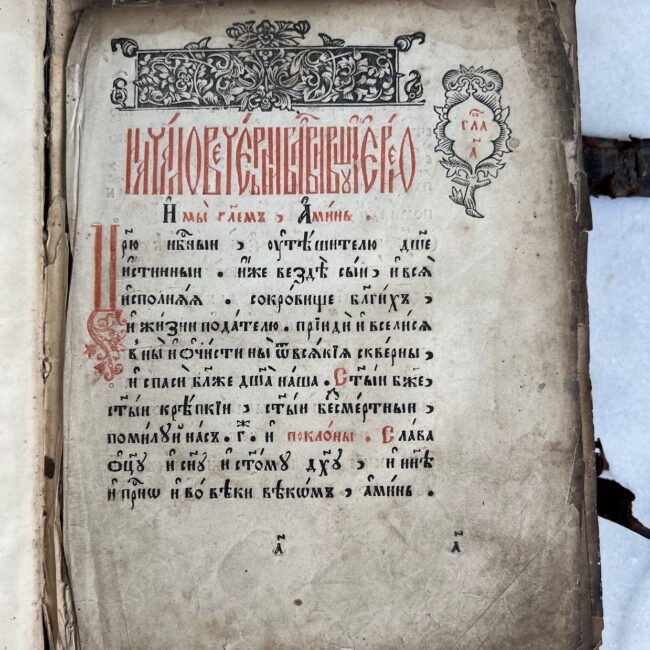 НАЧАЛО ВЕЧЕРНИ БЛ҃ГВИВШꙊ ІЕРЕЮ
гла҃
а҃
И҆ мы̀ гл҃емъ , А҆ми́нь .
Цр҃ю нб҃ныи , ᲂу҆тѣ́шителю дш҃е
и҆́стинныи . и҆́же вездѣ̀ сы́и , и҆ всѧ̀
и҆сполнѧ́ѧ . сокро́више бл҃ги́хъ ,
и҆ жи́зни пода́телю . прїидѝ и҆ всели́сѧ
в ны̀ и҆ ѡ҆чи́сти ны̀ ѿ всѧ́кїѧ скве́рны ,
и҆ спасѝ бл҃же дш҃а на́ша . Ст҃ы́и бж҃е
ст҃ы́и крѣ́пкїи , ст҃ы́и бесме́ртныи ,
поми́лꙋи на́съ . г҃ . и҆ покло́ны . Сла́ва
ѻ҆ц҃ꙋ̀ и҆ сн҃ꙋ и҆ ст҃о́мꙋ дх҃ꙋ , и҆ нн҃ѣ
и҆ при́сно и҆ во́ вѣки вѣко́мъ , а҆ми́нь .
а҃ а҃